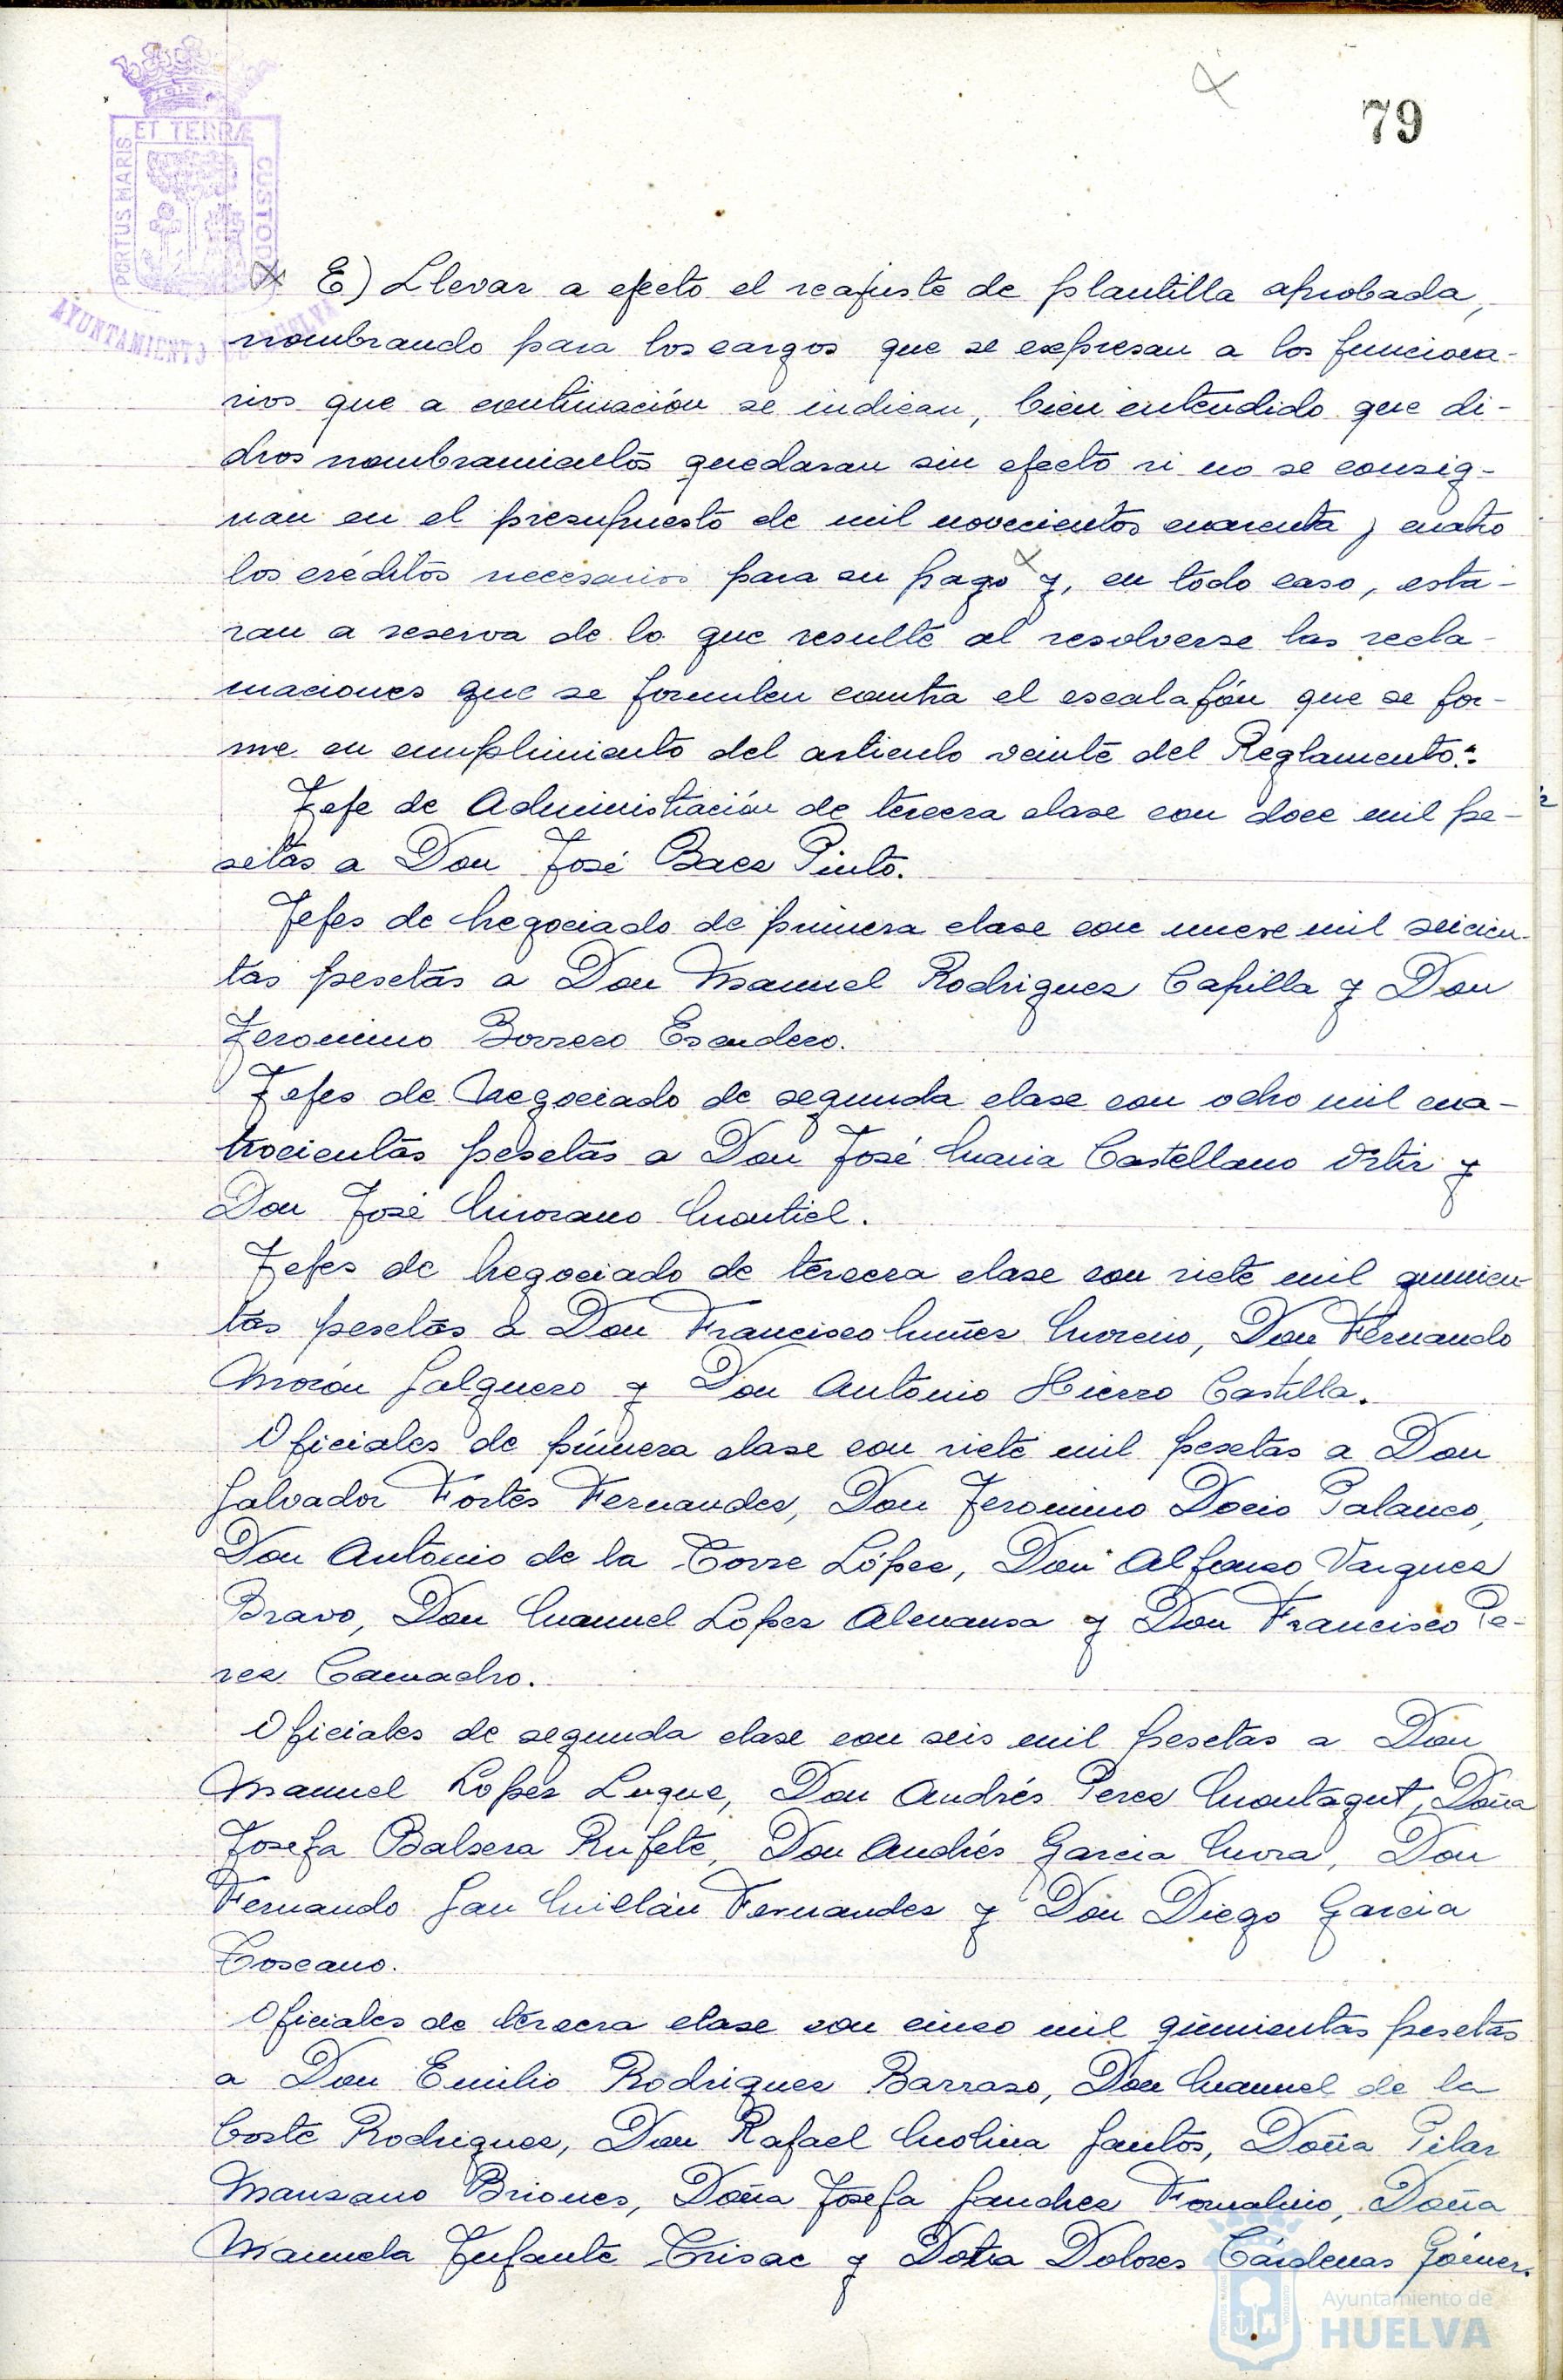 79
PORTUS MARIS ET TERRÆ CUSTODIA
AYUNTAMIENTO DE HUELVA
E) Llevar a efecto el reajuste de plantilla aprobada,
nombrando para los cargos que se expresan a los funciona-
rios que a continuación se indican, bien entendido que di-
chos nombramientos quedaran sin efecto si no se consig-
nan en el presupuesto de mil novecientos cuarenta y cuatro
los créditos necesarios para su pago y, en todo caso, esta-
ran a reserva de lo que resulte al resolverse las recla-
maciones que se formulen contra el escalafón que se for-
me en cumplimiento del articulo veinte del Reglamento.:
Jefe de Administración de tercera clase con doce mil pe-
setas a Don José Baez Pinto.
Jefes de Negociado de primera clase con nueve mil seicien-
tas pesetas a Don Manuel Rodriguez Capilla y Don
Jeronimo Borrero Escudero.
Jefes de Negociado de segunda clase con ocho mil cua-
trocientas pesetas a Don José Maria Castellano Ortiz y
Don José Morano Montiel.
Jefes de Negociado de tercera clase con siete mil quinien-
tas pesetas a Don Francisco Nuñez Moreno, Don Fernando
Morón Salguero y Don Antonio Hierro Castilla.
Oficiales de primera clase con siete mil pesetas a Don
Salvador Fortes Fernandez, Don Jeronimo Docio Palanco,
Don Antonio de la Torre López, Don Alfonso Vazquez
Bravo, Don Manuel Lopez Almansa y Don Francisco Pe-
rez Camacho.
Oficiales de segunda clase con seis mil pesetas a Don
Manuel Lopez Luque, Don Andrés Perez Montagut, Doña
Josefa Balsera Rufete, Don Andrés Garcia Mora, Don
Fernando San Millán Fernandez y Don Diego Garcia
Toscano.
Oficiales de tercera clase con cinco mil quinientas pesetas
a Don Emilio Rodriguez Barraso, Don Manuel de la
Corte Rodriguez, Don Rafael Molina Santos, Doña Pilar
Manzano Briones, Doña Josefa Sanchez Fornalino, Doña
Manuela Infante Trisac y Doña Dolores Cárdenas Gómez.
Ayuntamiento de
HUELVA